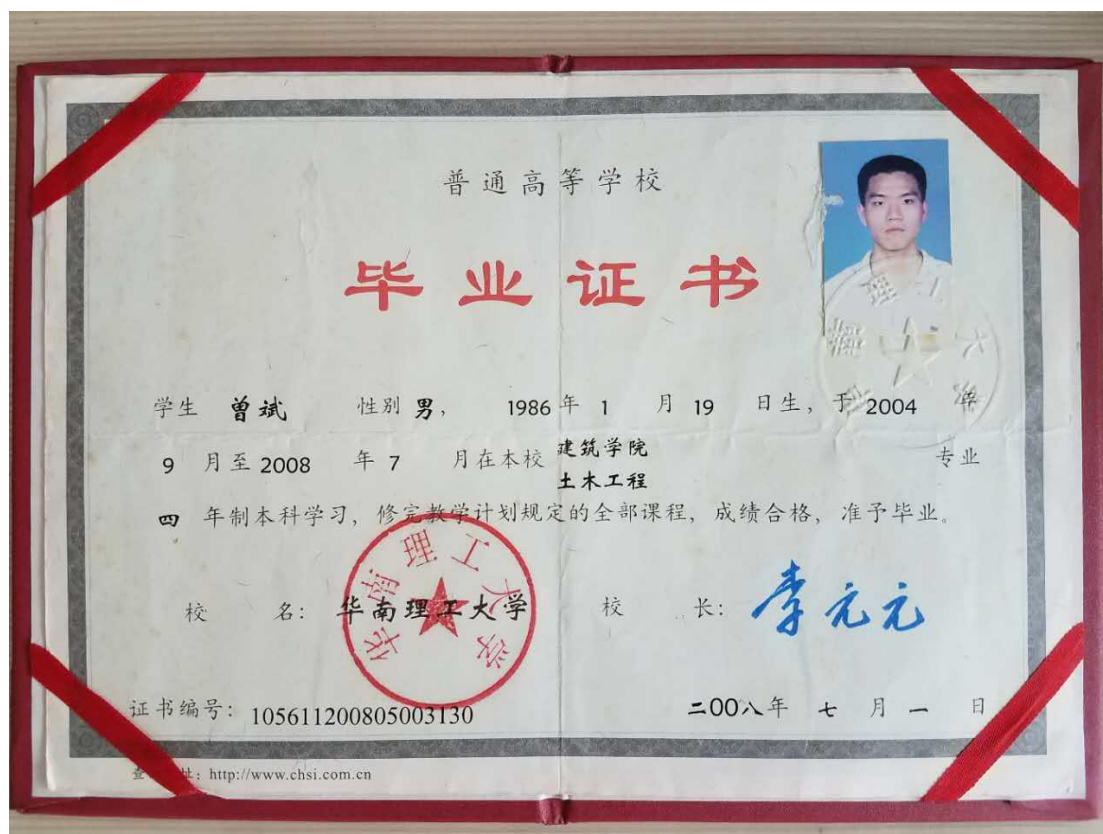 普通高等学校
毕业证书
学生 曾斌 性别 男, 1986 年 1 月 19 日生, 于 2004 年
9 月至 2008 年 7 月在本校 建筑学院 土木工程 专业
四 年制本科学习, 修完教学计划规定的全部课程, 成绩合格, 准予毕业。
华南理工大学
校 名: 华南理工大学 校 长: 李元元
证书编号: 105611200805003130 二00八年 七 月 一 日
查 址: http://www.chsi.com.cn